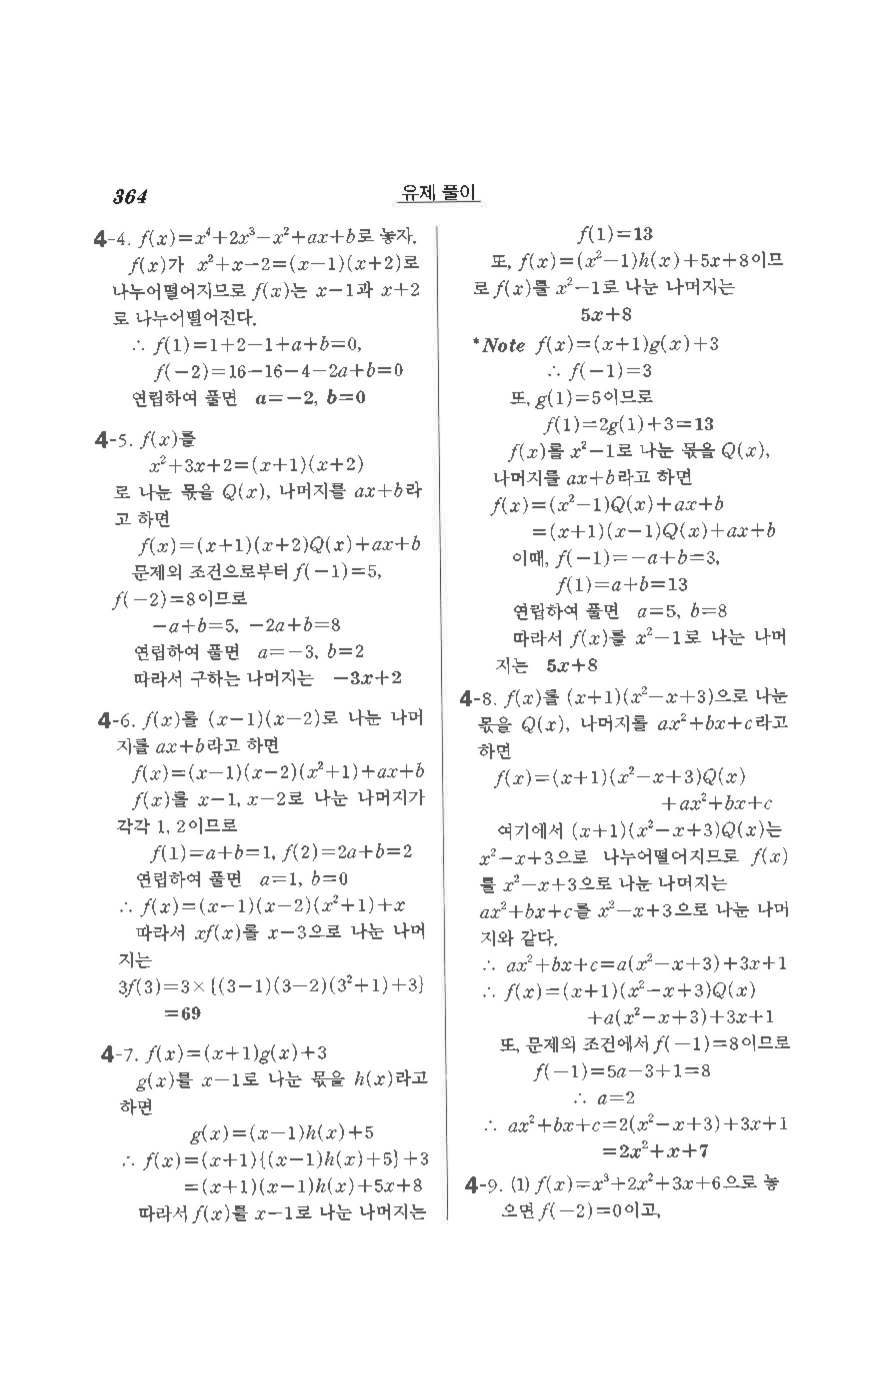 364
유제 풀이
4-4. f(x)=x⁴+2x³-x²+ax+b로 놓자.
f(x)가 x²+x-2=(x-1)(x+2)로
나누어떨어지므로 f(x)는 x-1과 x+2
로 나누어떨어진다.
∴ f(1)=1+2-1+a+b=0,
f(-2)=16-16-4-2a+b=0
연립하여 풀면 a=-2, b=0
4-5. f(x)를
x²+3x+2=(x+1)(x+2)
로 나눈 몫을 Q(x), 나머지를 ax+b라
고 하면
f(x)=(x+1)(x+2)Q(x)+ax+b
문제의 조건으로부터 f(-1)=5,
f(-2)=8이므로
-a+b=5, -2a+b=8
연립하여 풀면 a=-3, b=2
따라서 구하는 나머지는 -3x+2
4-6. f(x)를 (x-1)(x-2)로 나눈 나머
지를 ax+b라고 하면
f(x)=(x-1)(x-2)(x²+1)+ax+b
f(x)를 x-1, x-2로 나눈 나머지가
각각 1, 2이므로
f(1)=a+b=1, f(2)=2a+b=2
연립하여 풀면 a=1, b=0
∴ f(x)=(x-1)(x-2)(x²+1)+x
따라서 xf(x)를 x-3으로 나눈 나머
지는
3f(3)=3×{(3-1)(3-2)(3²+1)+3}
=69
4-7. f(x)=(x+1)g(x)+3
g(x)를 x-1로 나눈 몫을 h(x)라고
하면
g(x)=(x-1)h(x)+5
∴ f(x)=(x+1){(x-1)h(x)+5}+3
=(x+1)(x-1)h(x)+5x+8
따라서 f(x)를 x-1로 나눈 나머지는
f(1)=13
또, f(x)=(x²-1)h(x)+5x+8이므
로 f(x)를 x²-1로 나눈 나머지는
5x+8
*Note f(x)=(x+1)g(x)+3
∴ f(-1)=3
또, g(1)=5이므로
f(1)=2g(1)+3=13
f(x)를 x²-1로 나눈 몫을 Q(x),
나머지를 ax+b라고 하면
f(x)=(x²-1)Q(x)+ax+b
=(x+1)(x-1)Q(x)+ax+b
이때, f(-1)=-a+b=3,
f(1)=a+b=13
연립하여 풀면 a=5, b=8
따라서 f(x)를 x²-1로 나눈 나머
지는 5x+8
4-8. f(x)를 (x+1)(x²-x+3)으로 나눈
몫을 Q(x), 나머지를 ax²+bx+c라고
하면
f(x)=(x+1)(x²-x+3)Q(x)
+ax²+bx+c
여기에서 (x+1)(x²-x+3)Q(x)는
x²-x+3으로 나누어떨어지므로 f(x)
를 x²-x+3으로 나눈 나머지는
ax²+bx+c를 x²-x+3으로 나눈 나머
지와 같다.
∴ ax²+bx+c=a(x²-x+3)+3x+1
∴ f(x)=(x+1)(x²-x+3)Q(x)
+a(x²-x+3)+3x+1
또, 문제의 조건에서 f(-1)=8이므로
f(-1)=5a-3+1=8
∴ a=2
∴ ax²+bx+c=2(x²-x+3)+3x+1
=2x²+x+7
4-9. (1) f(x)=x³+2x²+3x+6으로 놓
으면 f(-2)=0이고,